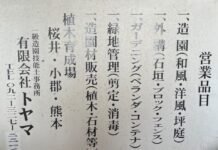 営業品目
一.造園(和風・洋風・坪庭)
一.外構(石垣・ブロック・フェンス)
一.ガーデニング(ベランダ・コンテナ)
一.緑地管理(剪定・消毒)
一.造園材販売(植木・石材等)
植木育成場
桜井・小郡・熊本
一級造園技能士事務所
有限会社トヤマ